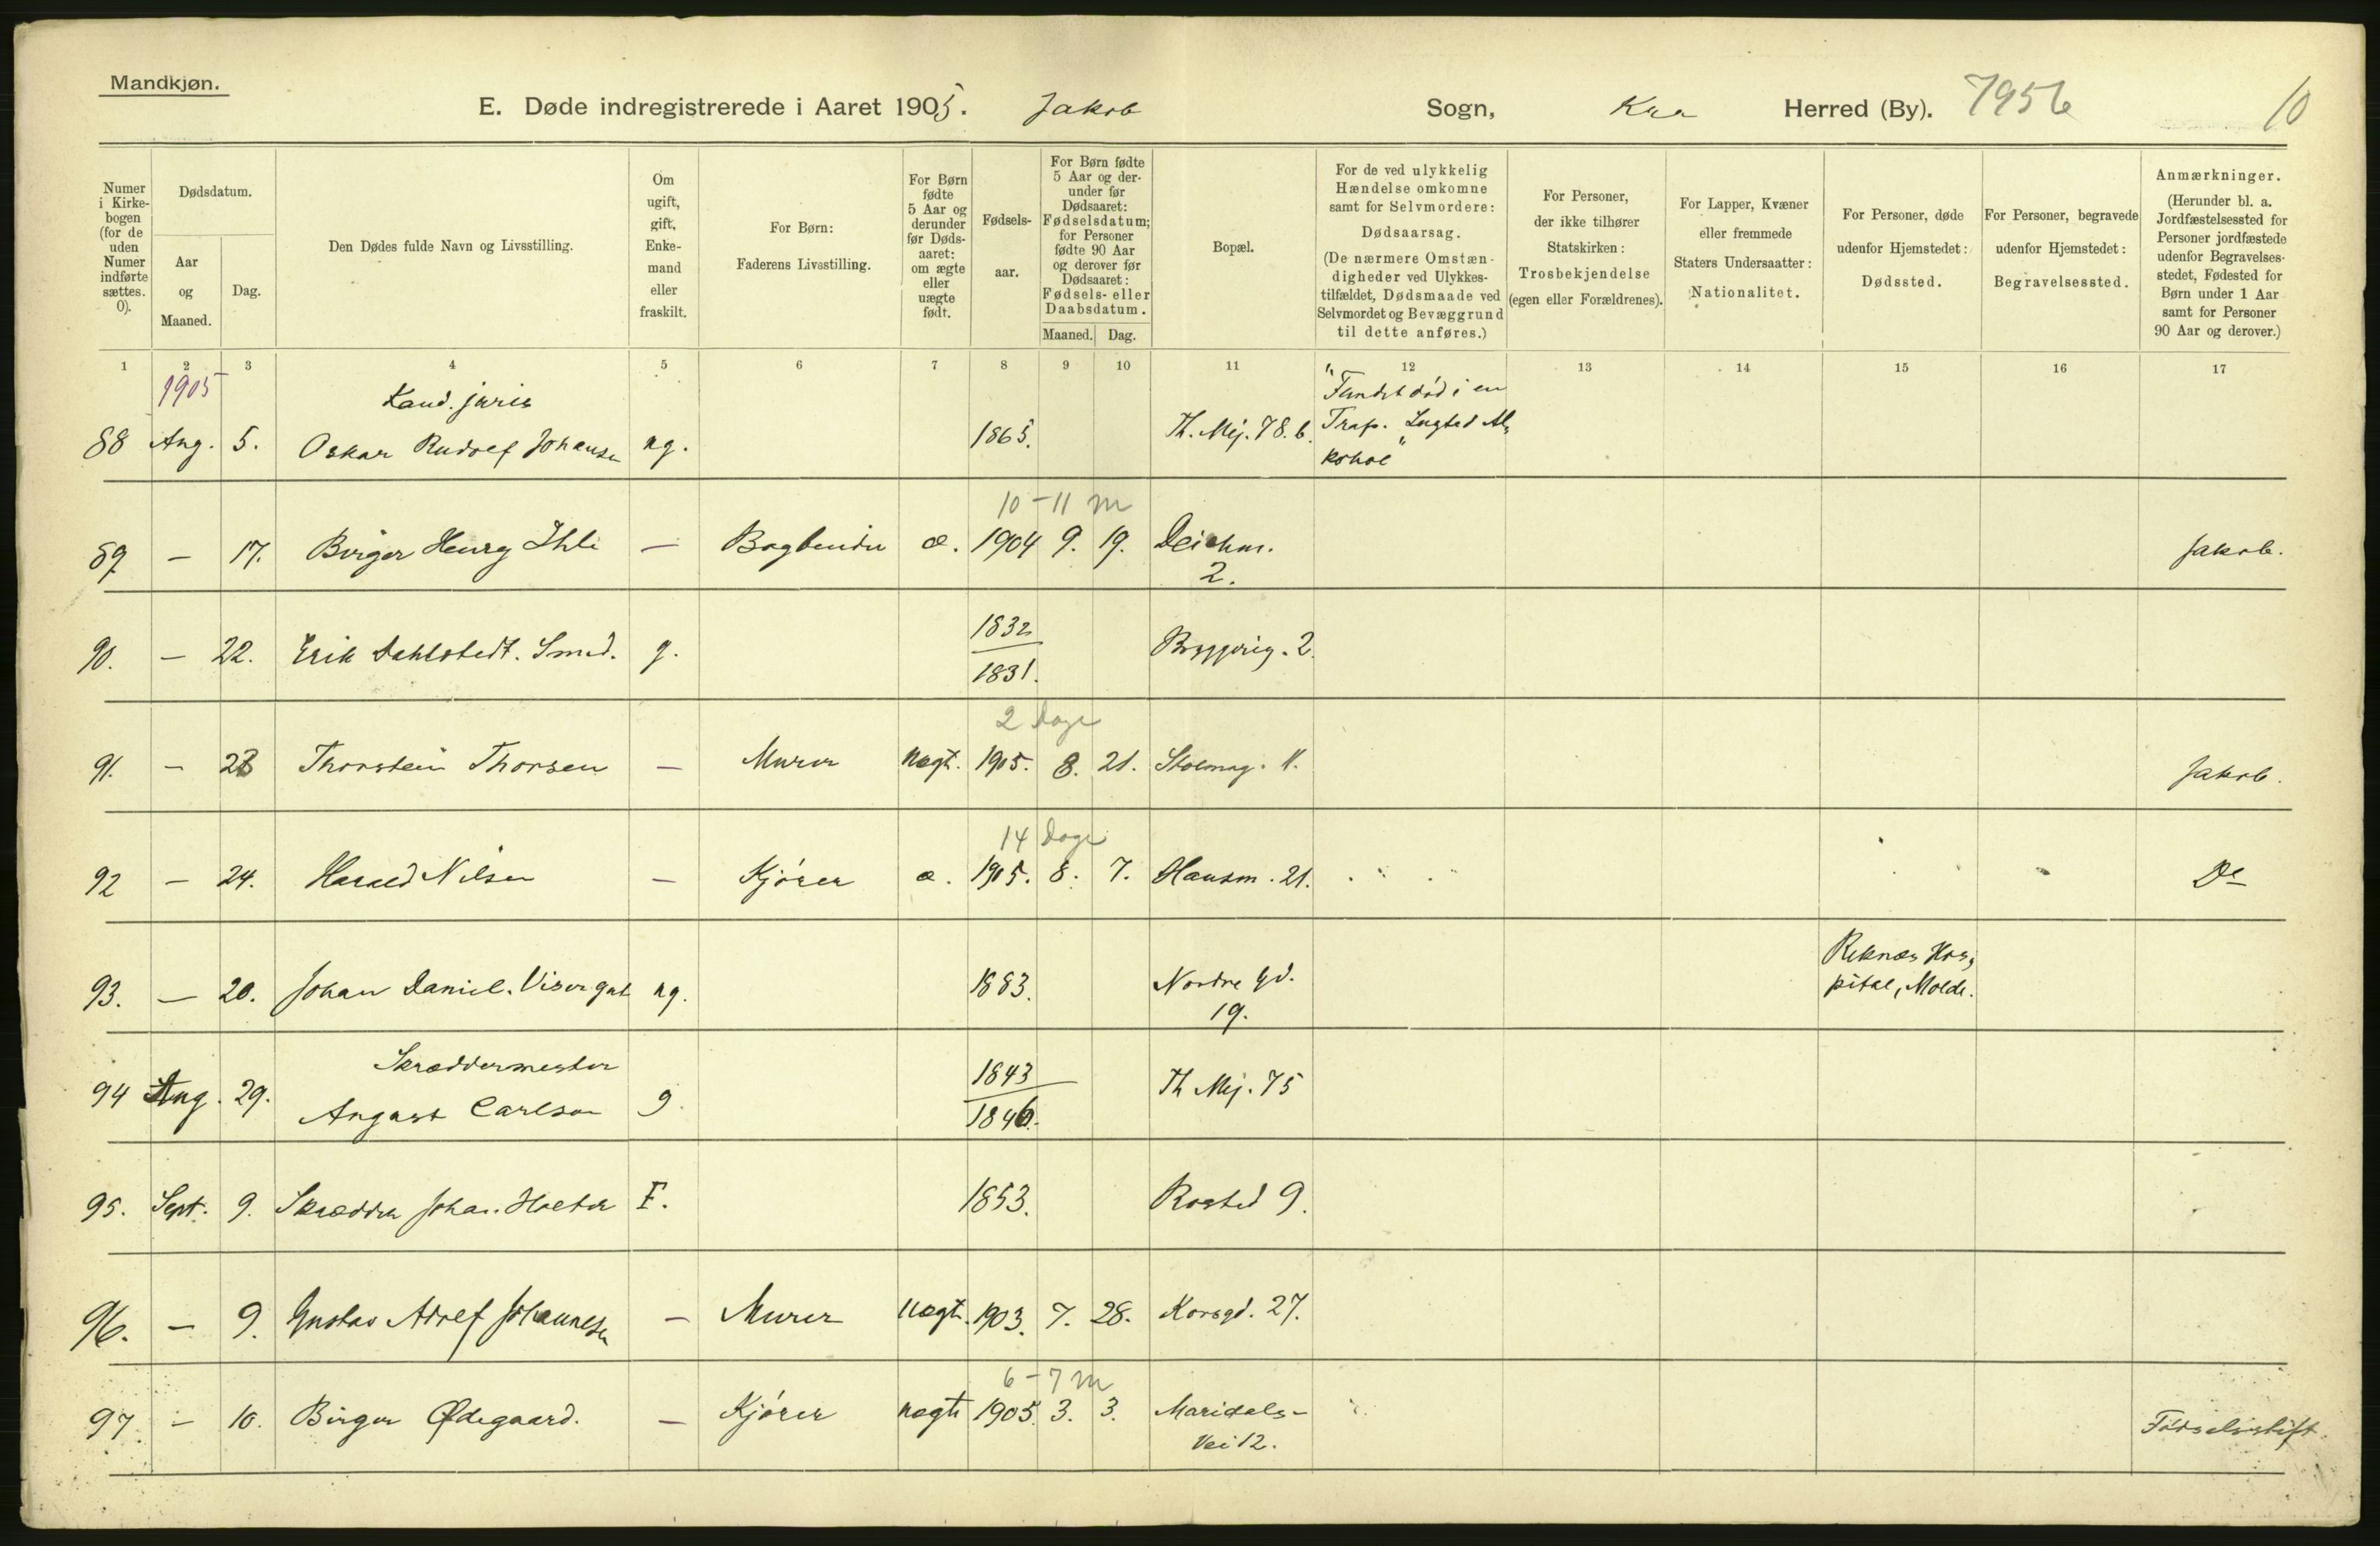 Mandkjøn.
E. Døde indregistrerede i Aaret 1905. Jakob Sogn, Kra Herred (By). 7956 10
Numer i Kirkebogen (for de uden Numer indførte sættes. 0).
Dødsdatum.
Aar og Maaned.
Dag.
Den Dødes fulde Navn og Livsstilling.
Om ugift, gift, Enkemand eller fraskilt.
For Børn: Faderens Livsstilling.
For Børn fødte 5 Aar og derunder før Dødsaaret: om ægte eller uægte født.
Fødselsaar.
For Børn fødte 5 Aar og derunder før Dødsaaret: Fødselsdatum; for Personer fødte 90 Aar og derover før Dødsaaret: Fødsels- eller Daabsdatum.
Maaned. Dag.
Bopæl.
For de ved ulykkelig Hændelse omkomne samt for Selvmordere: Dødsaarsag. (De nærmere Omstændigheder ved Ulykkestilfældet, Dødsmaade ved Selvmordet og Bevæggrund til dette anføres.)
For Personer, der ikke tilhører Statskirken: Trosbekjendelse (egen eller Forældrenes).
For Lapper, Kvæner eller fremmede Staters Undersaatter: Nationalitet.
For Personer, døde udenfor Hjemstedet: Dødssted.
For Personer, begravede udenfor Hjemstedet: Begravelsessted.
Anmærkninger. (Herunder bl. a. Jordfæstelsessted for Personer jordfæstede udenfor Begravelsesstedet, Fødested for Børn under 1 Aar samt for Personer 90 Aar og derover.)
1 2 3 4 5 6 7 8 9 10 11 12 13 14 15 16 17
1905
Kand. juris "Fundet død i en
88 Aug. 5. Oskar Rudolf Johansen ug. 1865. Th. Mej. 78.b. Trap. Lugted Al-
kohol"
10-11 M
89 — 17. Birger Henry Ihle — Bogbinder æ. 1904 9. 19. Deichm. Jakob.
2.
1832
90. — 22. Erik Dahlstedt. Smed. g. Bryggerig. 2.
1831.
2 Dage
91. — 23 Thorstein Thorsen — Murer uægt. 1905. 8. 21. Stolmag. 11. Jakob.
14 Dage
92 — 24. Harald Nilsen — Kjører æ. 1905. 8. 7. Hausm. 21. Do
Reknæs Hos-
93. — 20. Johan Daniel. Visergut ug. 1883. Nordre gd. pital, Molde.
19.
Skræddermester 1843
94 Aug. 29. August Carlson g. 1846. Th Mej. 75
95. Sept. 9. Skrædder Johan Holter F. 1853. Rosted 9.
96. — 9. Gustav Adolf Johannesen — Murer uægt. 1903. 7. 28. Korsgd. 27.
6-7 M
97. — 10. Birger Ødegaard. — Kjører uægte 1905. 3. 3. Maridals- Fødselsstift.
Vei 12.